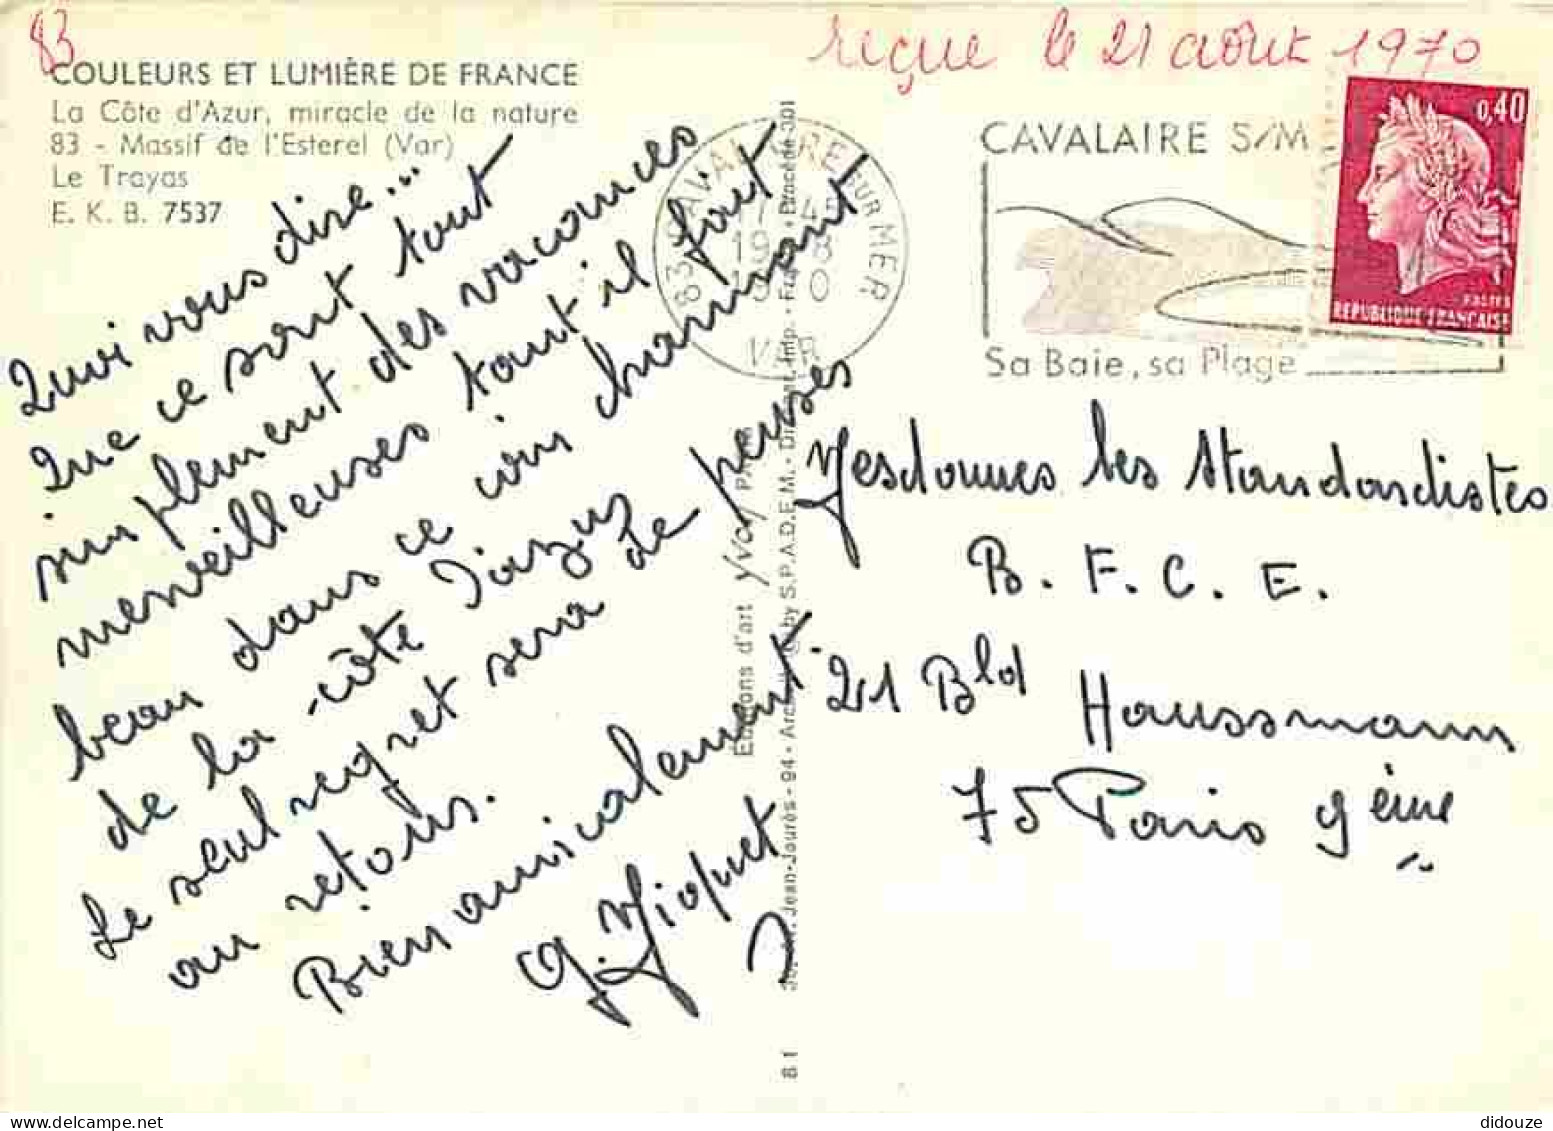 83
reçue le 21 août 1970
COULEURS ET LUMIÈRE DE FRANCE
La Côte d'Azur, miracle de la nature
83 - Massif de l'Esterel (Var)
Le Trayas
E. K. B. 7537
83 CAVALAIRE SUR MER
VAR
CAVALAIRE S/M
Sa Baie, sa Plage
0,40
POSTES
REPUBLIQUE FRANÇAISE
Quoi vous dire...
Que ce sont tout
simplement des vacances
merveilleuses tout il fait
beau dans ce coin charmant
de la côte d'azur
Le seul regret sera de penser
au retour.
Bien amicalement
G. Mioquet
Mesdames les Standardistes
B. F. C. E.
21 Bld Haussmann
75 Paris 9ème
Editions d'art Yvon
Jean-Jaurès - 94 - Arcueil
by S.P.A.D.E.M.
Procédé 301
81
didouze